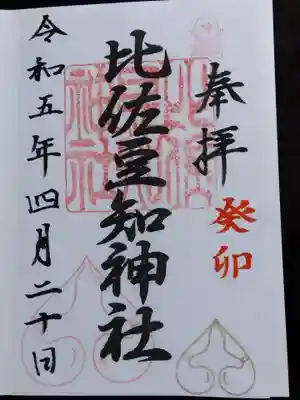 奉拝
癸卯
比佐豆知神社
令和五年四月二十日